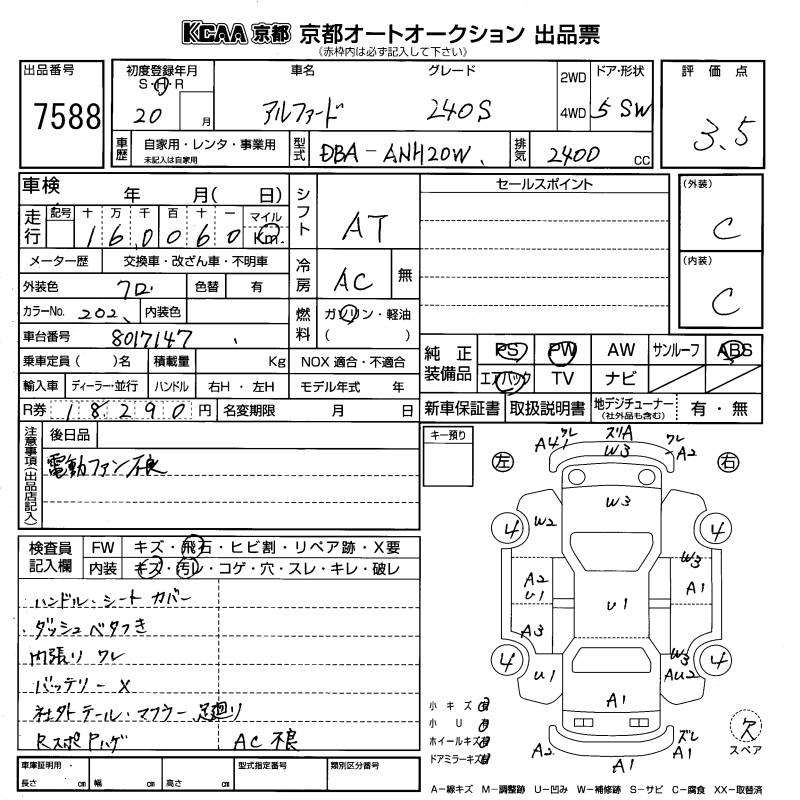 KCAA 京都 京都オートオークション 出品票
(赤枠内は必ず記入して下さい)
出品番号
7588
初度登録年月
S・H・R
20 月
車名
アルファード
グレード
240S
2WD
4WD
ドア・形状
5 SW
評価点
3.5
車歴
自家用・レンタ・事業用
未記入は自家用
型式
DBA-ANH20W
排気
2400 cc
車検 年 月( 日)
走行
記号 十 万 千 百 十 一 マイル
1 6 0 0 6 0 Km
メーター歴 交換車・改ざん車・不明車
外装色 クロ 色替 有
カラーNo. 202 内装色
車台番号 8017147
乗車定員 ( )名 積載量 Kg
輸入車 ディーラー・並行 ハンドル 右H・左H
R券 18290 円 名変期限 月 日
シフト AT
冷房 AC 無
燃料 ガソリン・軽油
( )
NOX 適合・不適合
モデル年式 年
セールスポイント
(外装)
C
(内装)
C
純正装備品
PS PW AW サンルーフ ABS
エアバック TV ナビ
新車保証書 取扱説明書 地デジチューナー
(社外品も含む) 有・無
注意事項(出品店記入)
後日品
電動ファン不良
キー預り
検査員記入欄
FW キズ・飛石・ヒビ割・リペア跡・X要
内装 キズ・汚レ・コゲ・穴・スレ・キレ・破レ
ハンドル・シート カバー
ダッシュ ベタつき
内張り ワレ
バッテリー X
社外テール・マフラー 足廻り
Rスポ Pハゲ AC不良
左 右
A4 ワレ ズリA ワレ A2
W3
W3
4 W2 4
W3
A2 U1 U1 A1
A3
W3
4 U1 AU2 4
A1
A2 ズレ A1
小キズ 有
小U 有
ホイールキズ 有
ドアミラーキズ 有
欠
スペア
車庫証明用・
長さ cm 幅 cm 高さ cm
型式指定番号
類別区分番号
A-線キズ M-調整跡 U-凹み W-補修跡 S-サビ C-腐食 XX-取替済